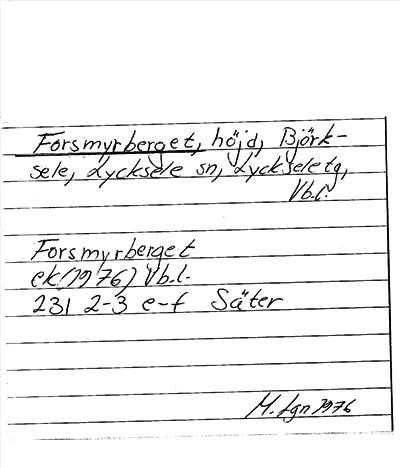 Forsmyrberget, höjd, Björk-
sele, Lycksele sn, Lycksele tg,
Vb.l.
Forsmyrberget
ek (1976) Vb.l.
231 2-3 e-f Säter
M. Lgn 1976